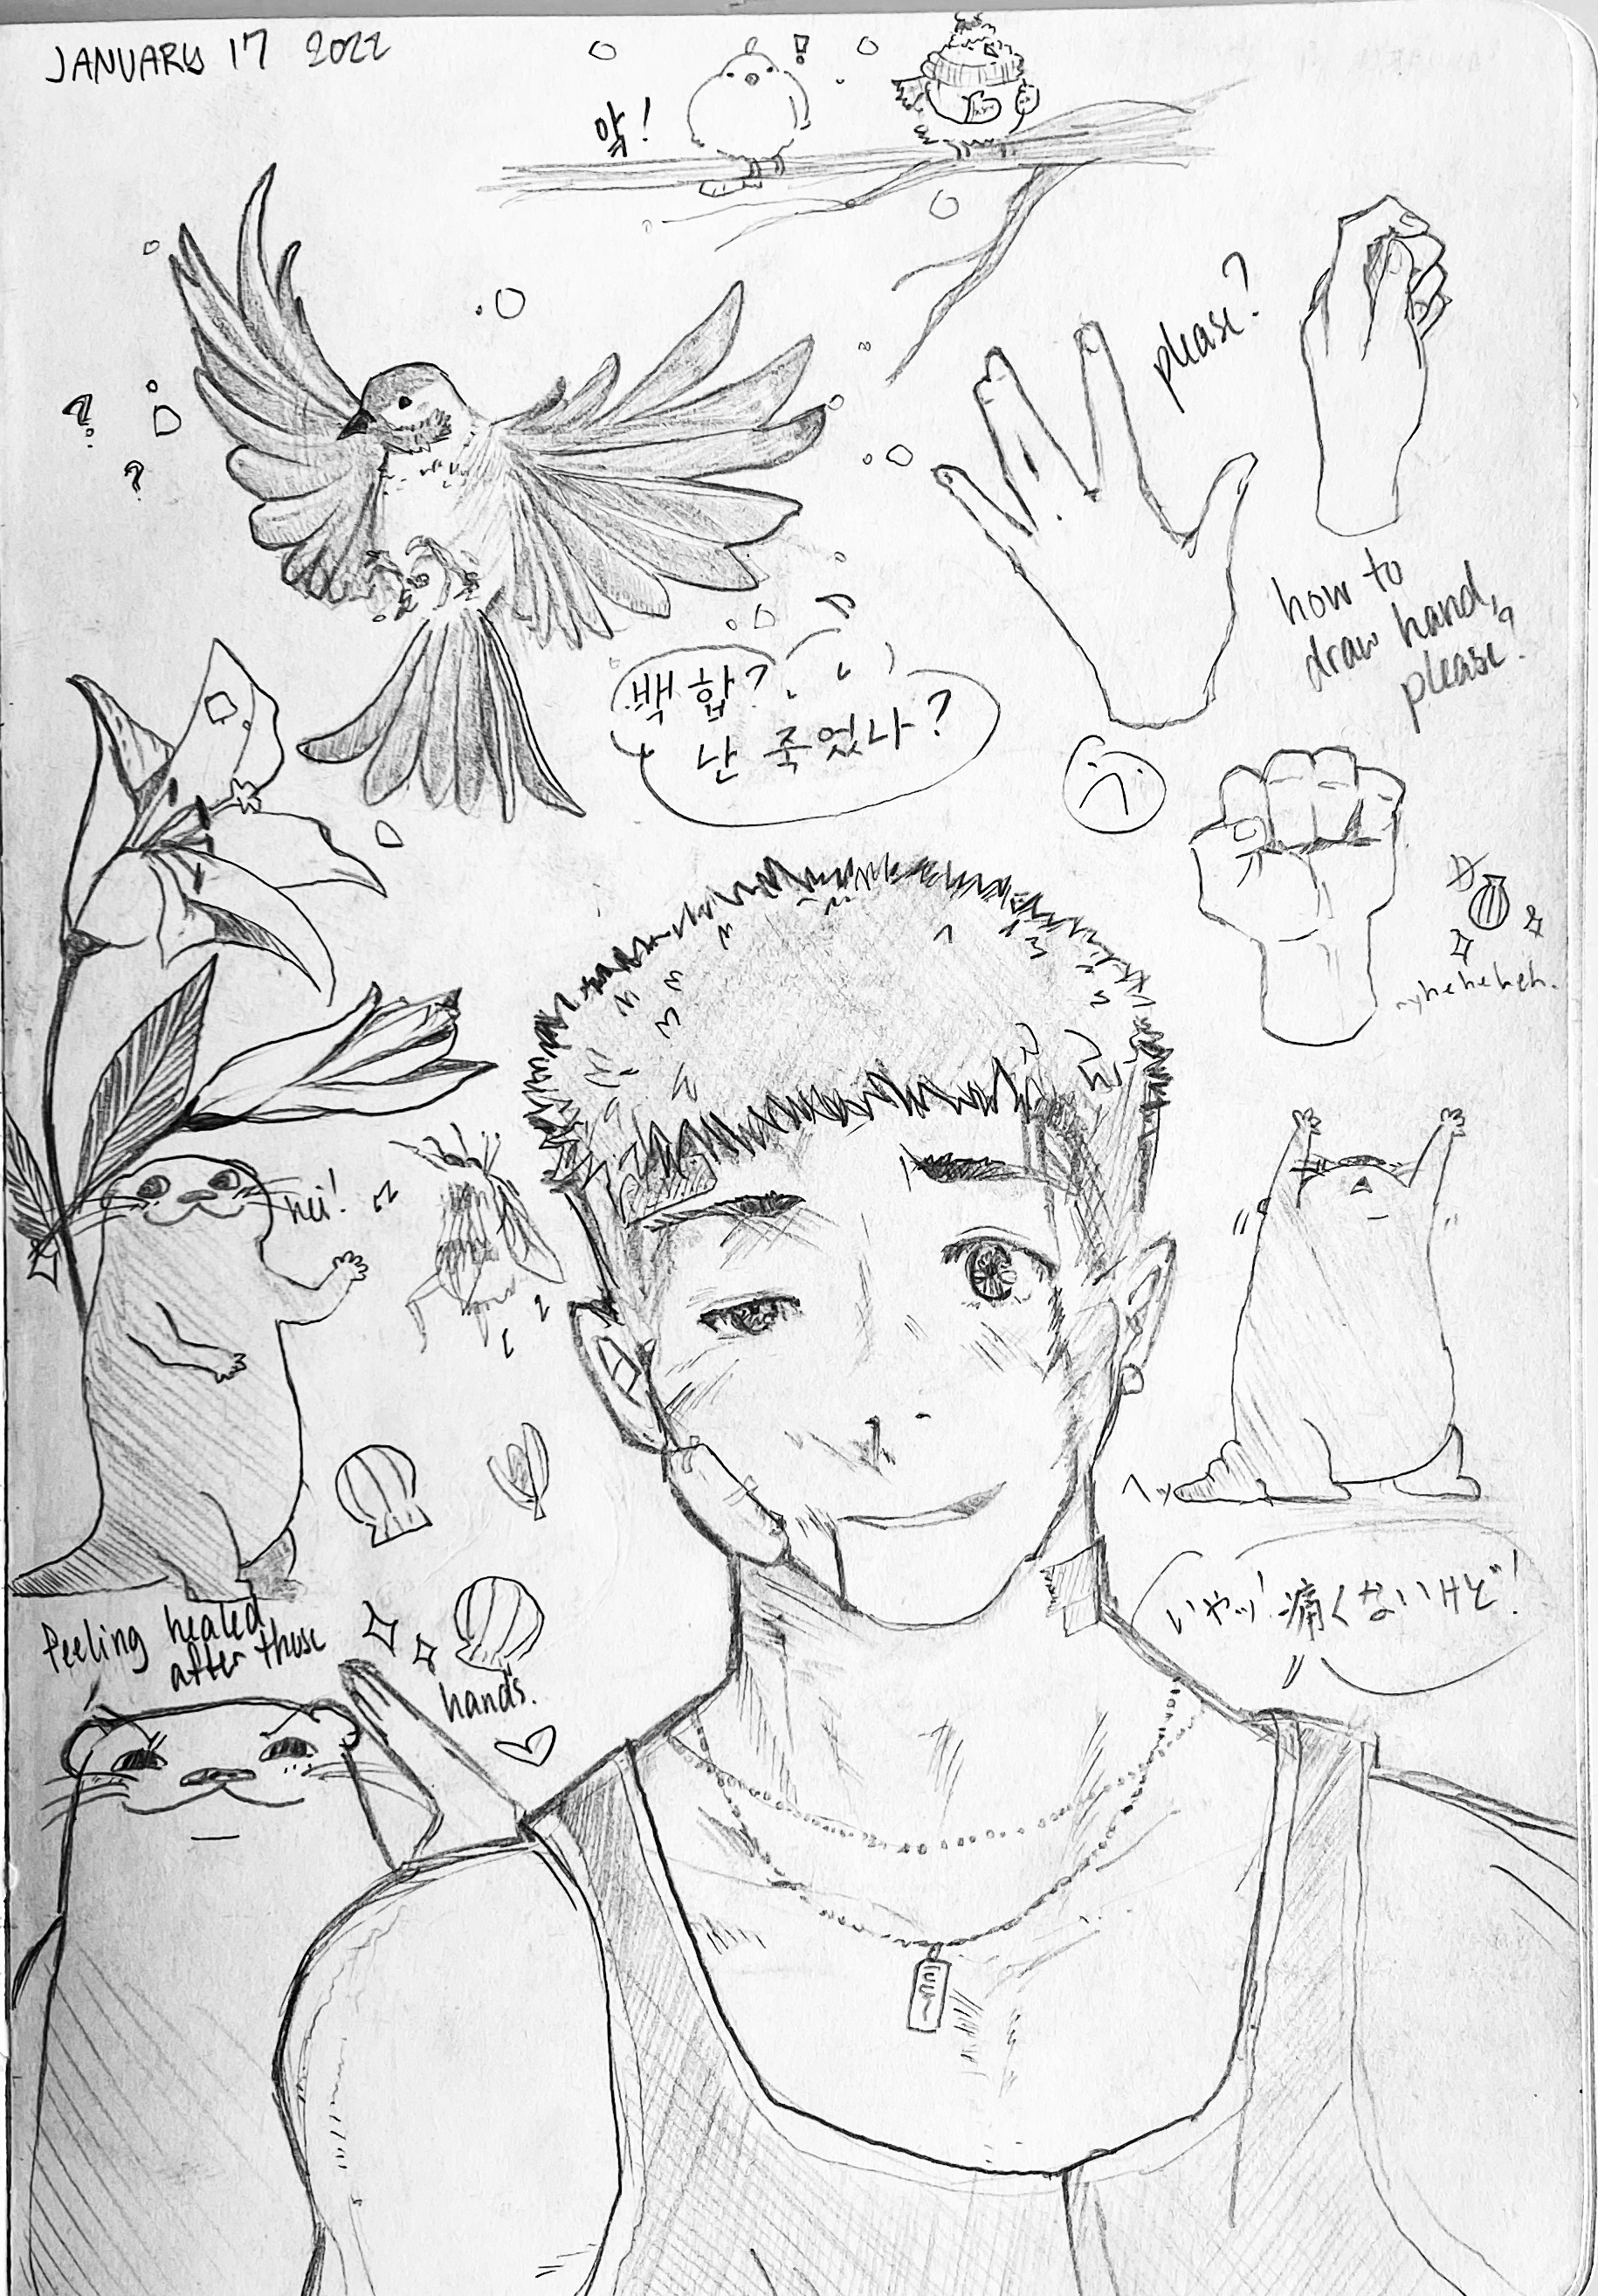 JANUARY 17 2022
악!
please?
how to
draw hand,
please?
백합?
난 죽었나?
nyheheheh.
hei!
いやッ! 痛くないけど!
Feeling healed
after those
hands.